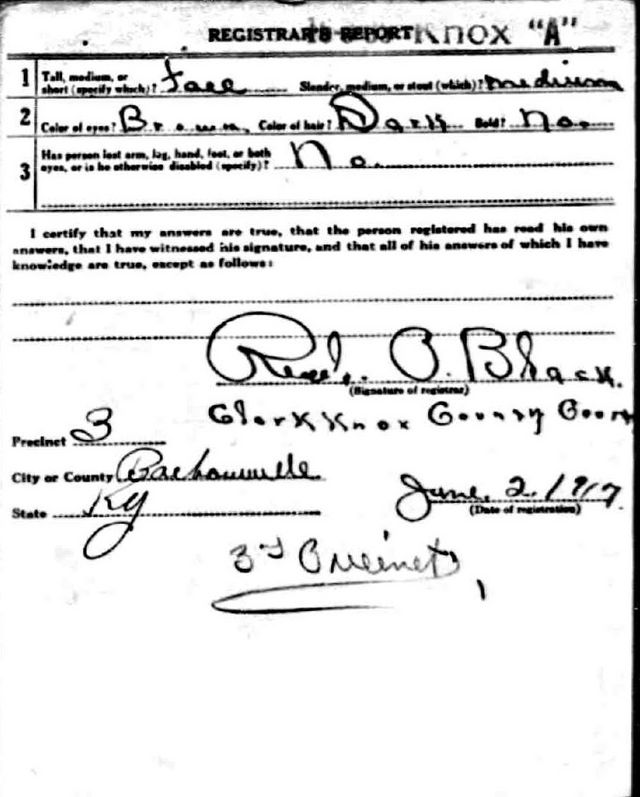 REGISTRAR'S REPORT KNOX "A"
1 Tall, medium, or short (specify which)? tall Slender, medium, or stout (which)? medium
2 Color of eyes? Brown Color of hair? Dark Bald? no.
3 Has person lost arm, leg, hand, foot, or both eyes, or is he otherwise disabled (specify)? No.
I certify that my answers are true, that the person registered has read his own
answers, that I have witnessed his signature, and that all of his answers of which I have
knowledge are true, except as follows:
O. Black.
(Signature of registrar)
Clerk Knox County Court
Precinct 3
City or County Barbourville
State Ky
June 2 1917
(Date of registration)
3rd Precinct